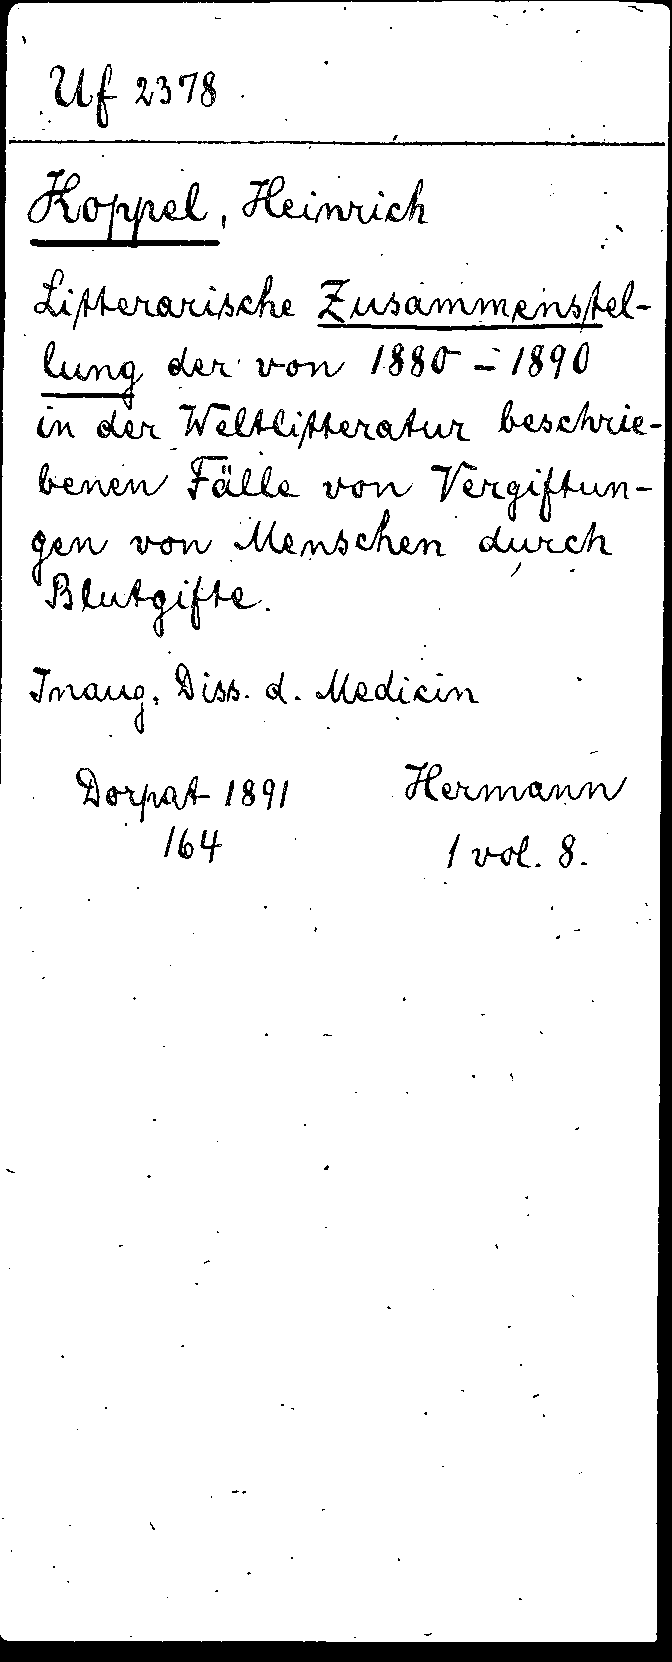 Uf 2378
Koppel, Heinrich
Litterarische Zusammenstel-
lung der von 1880-1890
in der Weltlitteratur beschrie-
benen Fälle von Vergiftun-
gen von Menschen durch
Blutgifte.
Inaug. Diss. d. Medicin
Dorpat 1891 Hermann
164 1 vol. 8.